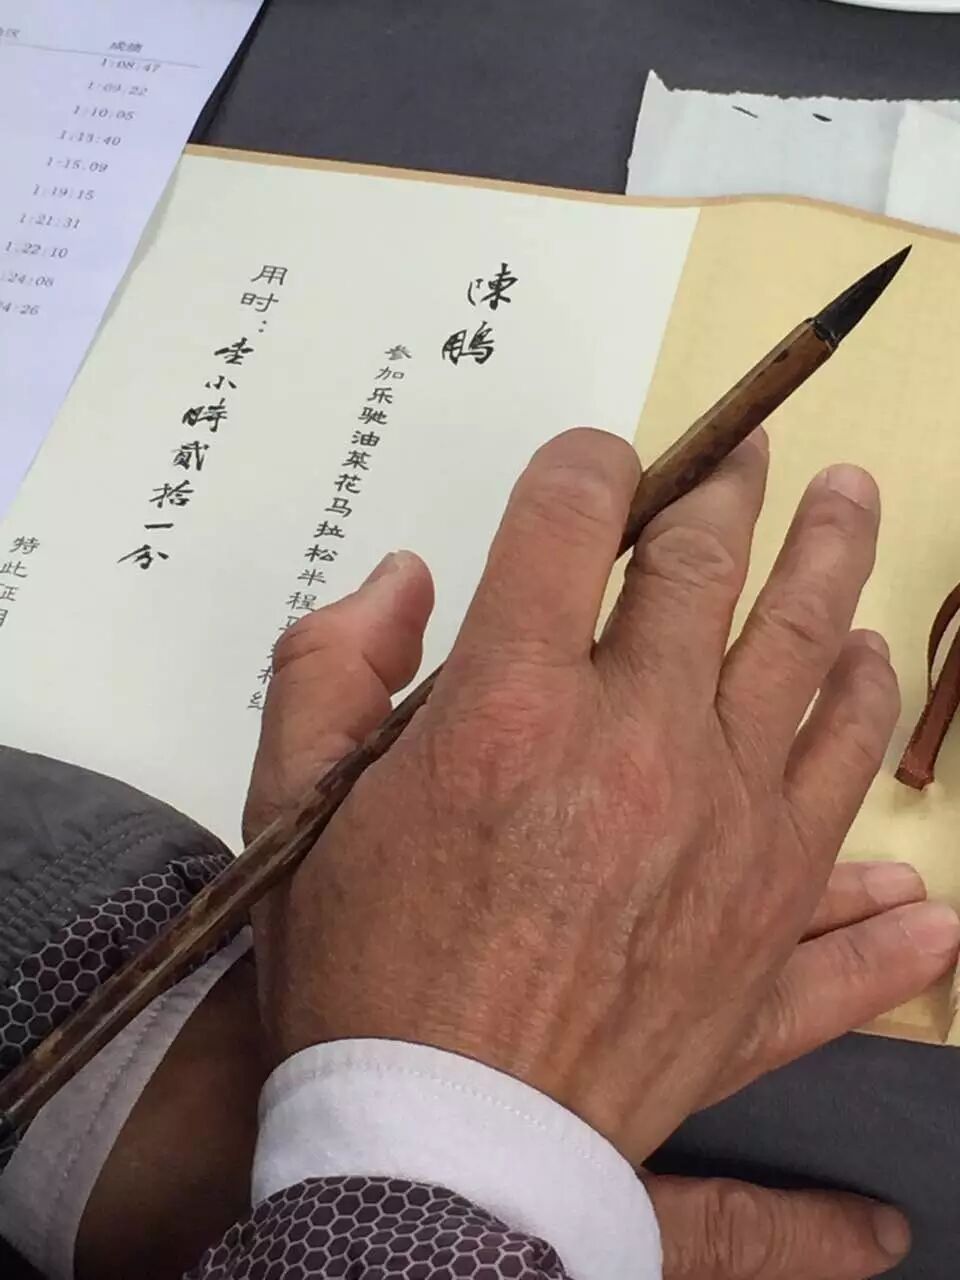 陳鵬
参加乐驰油菜花马拉松半程
用时：壹小時貳拾一分
特此
成绩
1:08:47
1:09:22
1:10:05
1:13:40
1:15:09
1:19:15
1:21:31
1:22:10
:24:08
4:26